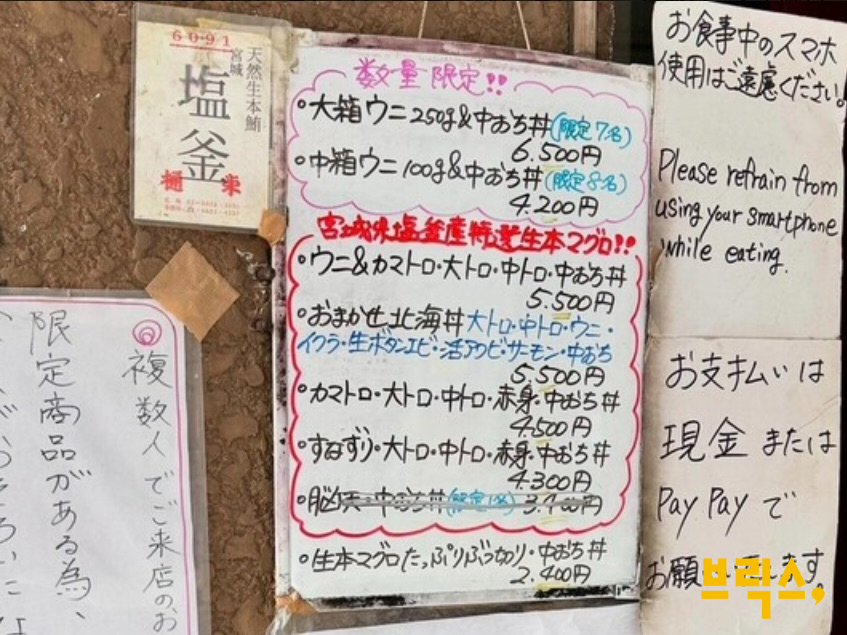 6091
天然生本鮪
宮城
塩釜
樋栄
数量限定!!
○大箱ウニ250g&中おち丼(限定7名)
6.500円
○中箱ウニ100g&中おち丼(限定8名)
4.200円
宮城県塩釜産特選生本マグロ!!
○ウニ&カマトロ・大トロ・中トロ・中おち丼
5.500円
○おまかせ北海丼大トロ・中トロ・ウニ・
イクラ・生ボタンエビ・活アワビ・サーモン・中おち
5.500円
○カマトロ・大トロ・中トロ・赤身・中おち丼
4.500円
○すねずり・大トロ・中トロ・赤身・中おち丼
4.300円
○脳天・中おち丼(限定1名) 3.400円
○生本マグロたっぷりぶつ切り・中おち丼
2.400円
お食事中のスマホ
使用はご遠慮ください。
Please refrain from
using your smartphone
while eating.
お支払いは
現金または
PayPayで
お願いします。
◎複数人でご来店のお
限定商品がある為、
브릭스,